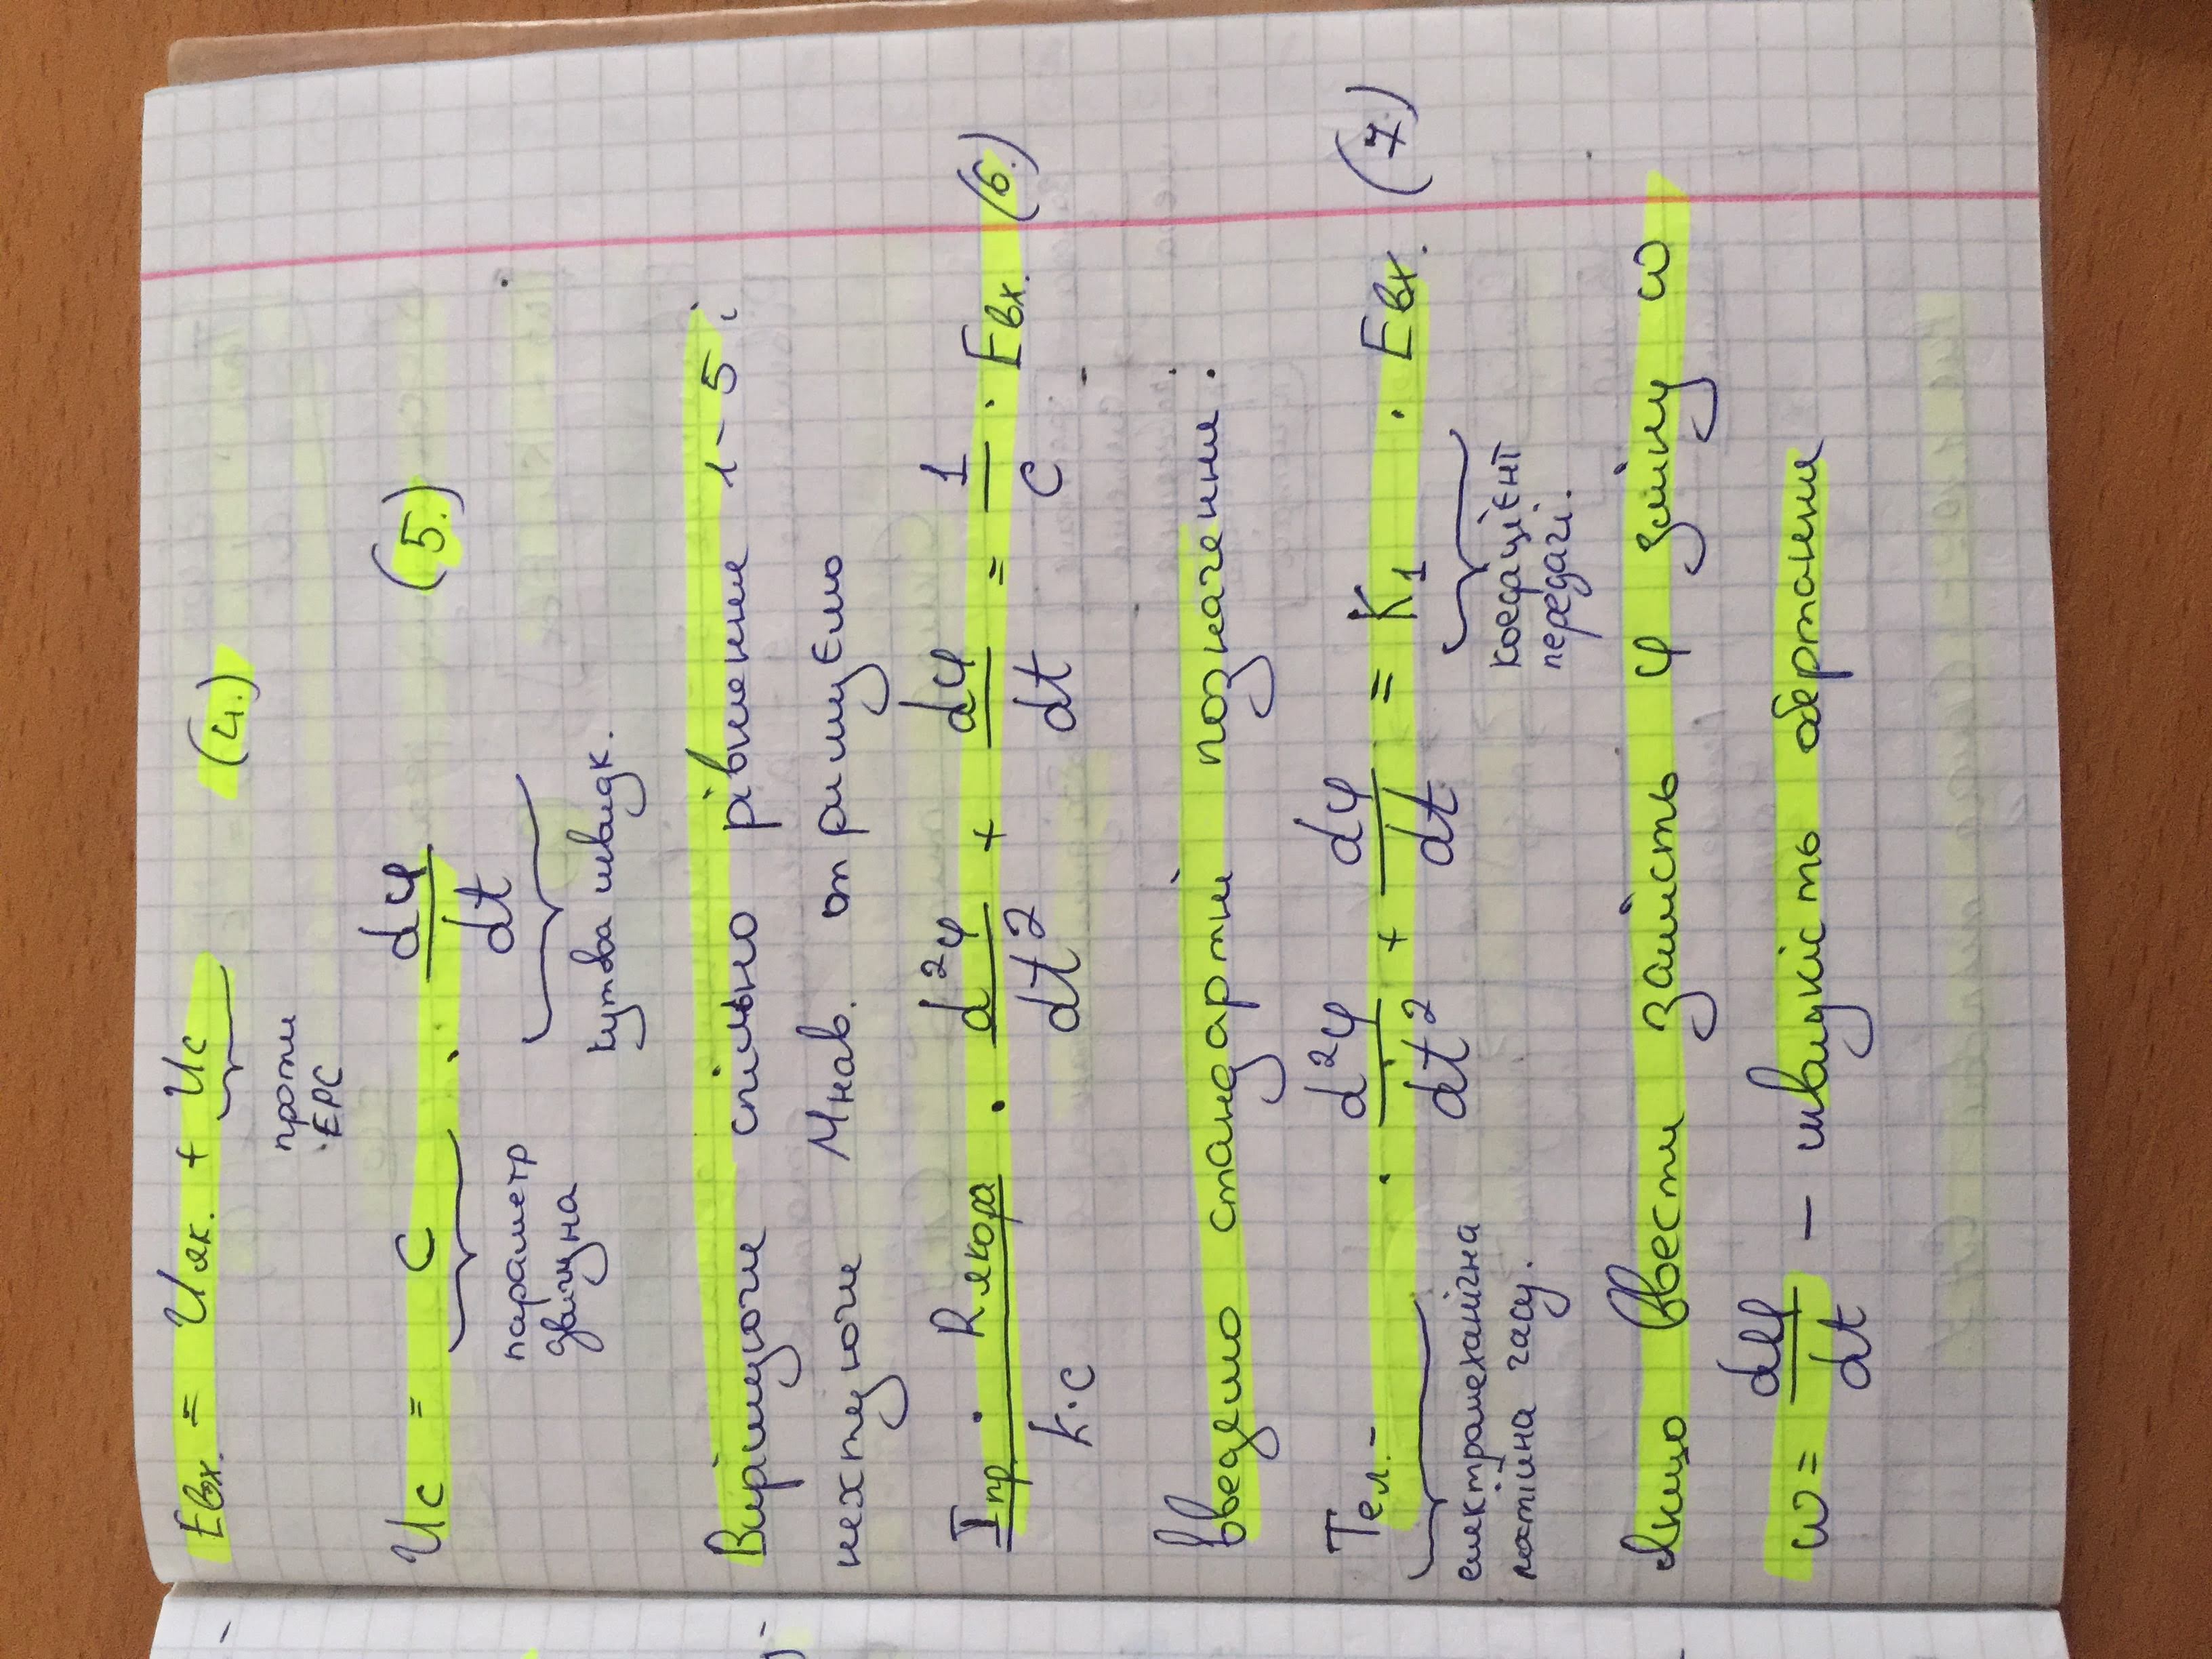 Eвх. = Uяк. + Uс (4.)
проти
ЕРС
Uс = c · dφ/dt (5.)
параметр
двигуна
кутова швидк.
Вирішуючи спільно рівняння 1-5 і
нехтуючи Mнав. отримуємо
Iпр. · Rякора / k·c · d²φ/dt² + dφ/dt = 1/c · Eвх. (6.)
введемо стандартні позначення:
Tел.- · d²φ/dt² + dφ/dt = K₁ · Eвх. (7.)
електромеханічна
постійна часу.
коефіцієнт
передачі.
якщо ввести замість φ зміну ω
ω = dφ/dt – швидкість обертання